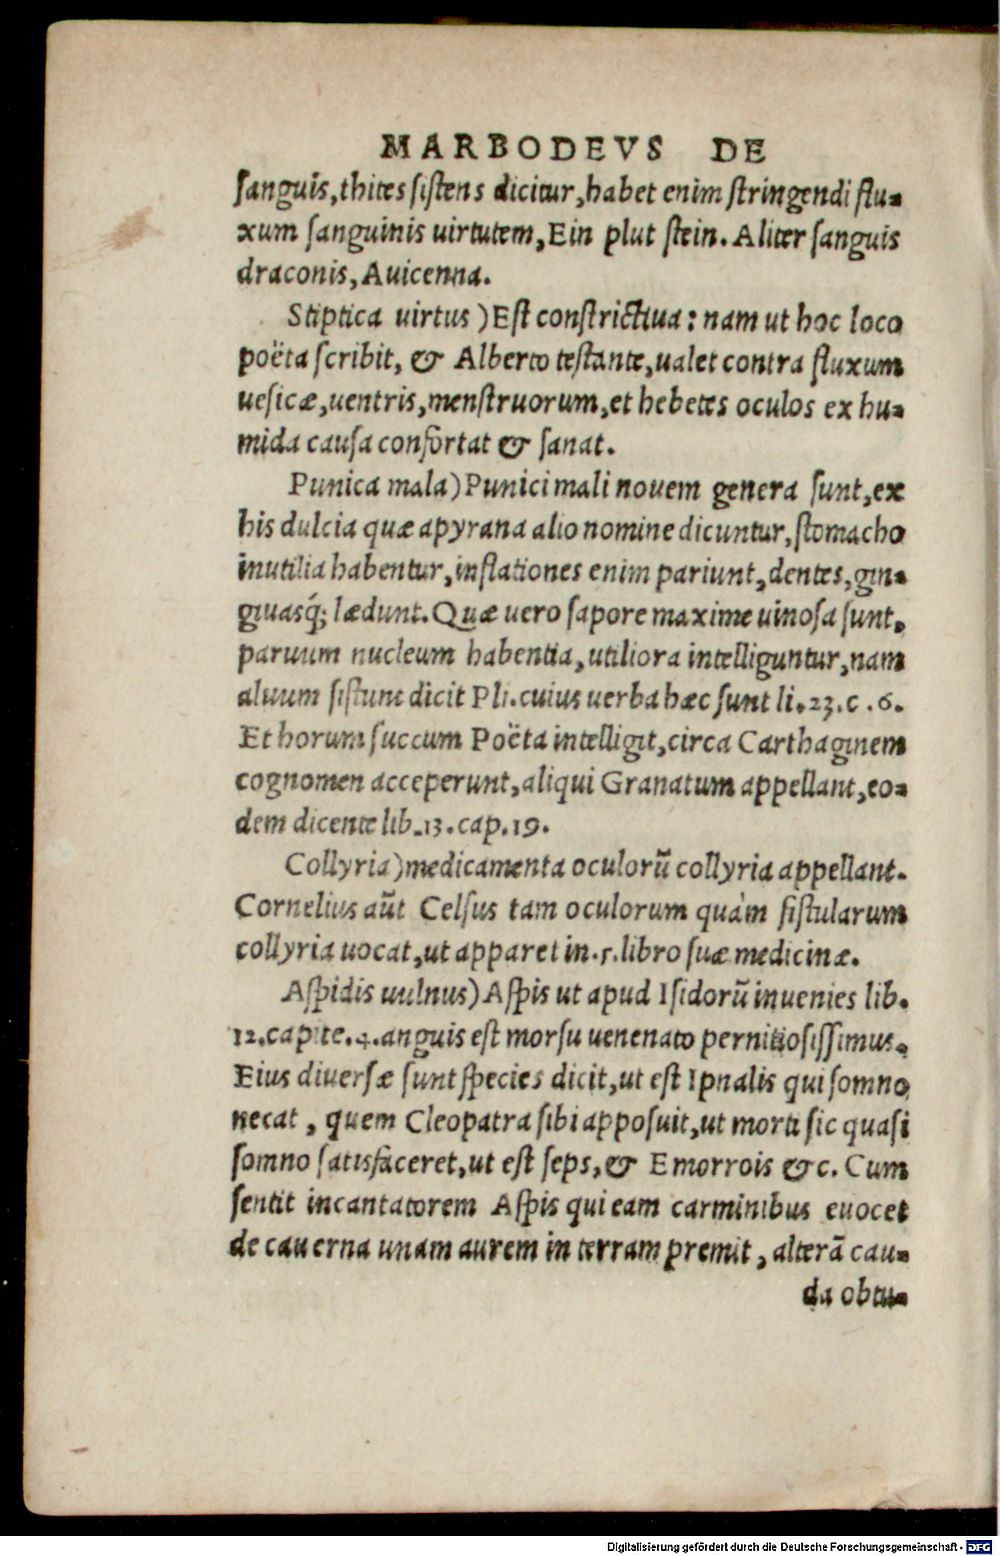 MARBODEVS DE
sanguis, thites sistens dicitur, habet enim stringendi flu-
xum sanguinis uirtutem, Ein plut stein. Aliter sanguis
draconis, Auicenna.
Stiptica uirtus) Est constrictiua: nam ut hoc loco
poëta scribit, & Alberto testante, ualet contra fluxum
uesicæ, uentris, menstruorum, et hebetes oculos ex hu-
mida causa confortat & sanat.
Punica mala) Punici mali nouem genera sunt, ex
his dulcia quæ apyrana alio nomine dicuntur, stomacho
inutilia habentur, inflationes enim pariunt, dentes, gin-
giuasq́; lædunt. Quæ uero sapore maxime uinosa sunt,
paruum nucleum habentia, utiliora intelliguntur, nam
aluum sistunt dicit Pli. cuius uerba hæc sunt li. 23. c. 6.
Et horum succum Poëta intelligit, circa Carthaginem
cognomen acceperunt, aliqui Granatum appellant, eo-
dem dicente lib. 13. cap. 19.
Collyria) medicamenta oculorũ collyria appellant.
Cornelius aũt Celsus tam oculorum quàm fistularum
collyria uocat, ut apparet in. 5. libro suæ medicinæ.
Aspidis uulnus) Aspis ut apud Isidorũ inuenies lib.
12. capite. 4. anguis est morsu uenenato pernitiosissimus.
Eius diuersæ sunt species dicit, ut est Ipnalis qui somno
necat, quem Cleopatra sibi apposuit, ut morti sic quasi
somno satisfaceret, ut est seps, & Emorrois &c. Cum
sentit incantatorem Aspis qui eam carminibus euocet
de cauerna unam aurem in terram premit, alterã cau-
da obtu-
Digitalisierung gefördert durch die Deutsche Forschungsgemeinschaft - DFG